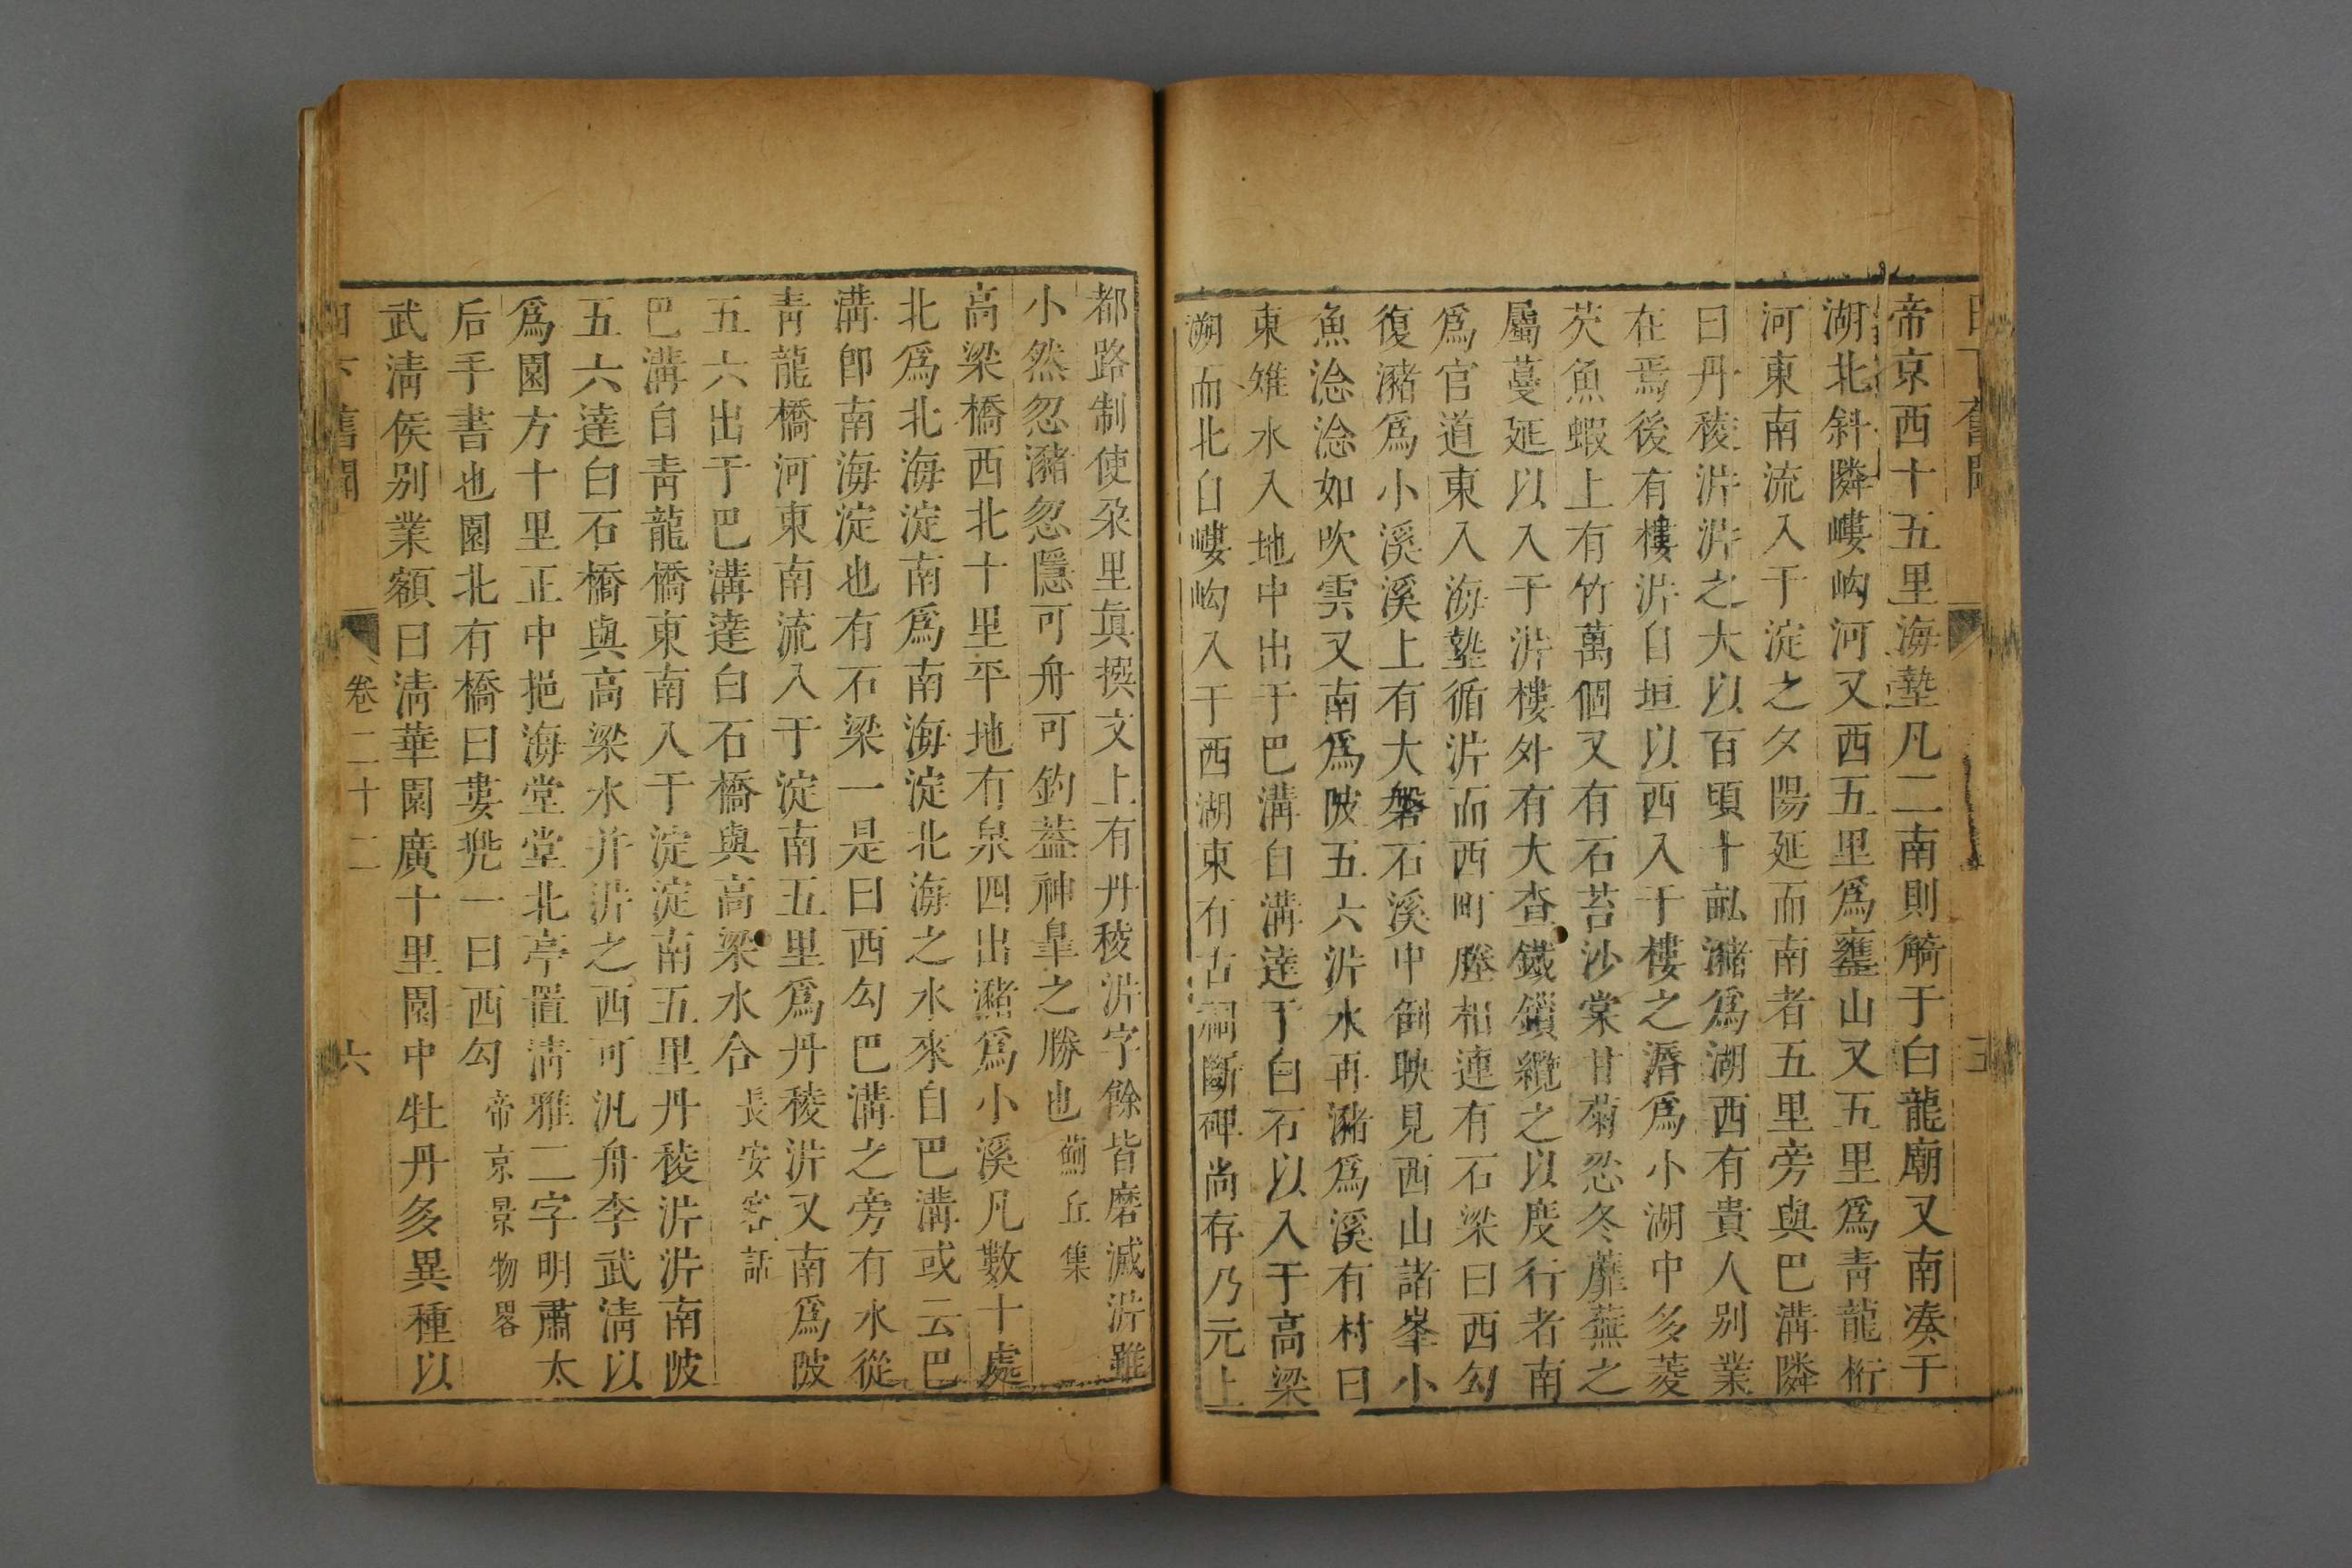 帝京西十五里海墊凡二南則觭于白龍廟又南凑于
湖北斜隣嶁岣河又西五里爲甕山又五里爲青龍桁
河東南流入于淀之夕陽延而南者五里旁與巴溝隣
曰丹稜沜沜之大以百頃十畝瀦爲湖西有貴人别業
在焉後有樓沜自垣以西入于樓之漘爲小湖中多菱
芡魚蝦上有竹萬個又有石苔沙棠甘菊忍冬蘼蕪之
屬蔓延以入于沜樓外有大查鐵鎖纜之以度行者南
爲官道東入海墊循沜而西町塍相連有石梁曰西勾
復瀦爲小溪溪上有大磐石溪中倒映見西山諸峯小
魚淰淰如吹雲又南爲陂五六沜水再瀦爲溪有村曰
東雉水入地中出于巴溝自溝達于白石以入于高梁
溯而北自嶁岣入于西湖東有古祠斷碑尚存乃元上
都路制使朶里眞撰文上有丹稜沜字餘皆磨滅沜雖
小然忽瀦忽隱可舟可釣葢神臯之勝也 薊丘集
高梁橋西北十里平地有泉四出瀦爲小溪凡數十處
北爲北海淀南爲南海淀北海之水來自巴溝或云巴
溝卽南海淀也有石梁一是曰西勾巴溝之旁有水從
青龍橋河東南流入于淀南五里爲丹稜沜又南爲陂
五六出于巴溝達白石橋與高梁水合 長安客話
巴溝自青龍橋東南入于淀淀南五里丹稜沜沜南陂
五六達白石橋與高梁水并沜之西可汎舟李武淸以
爲園方十里正中挹海堂堂北亭置淸雅二字明肅太
后手書也園北有橋曰婁兠一曰西勾 帝京景物畧
武淸侯别業額曰淸華園廣十里園中牡丹多異種以
卷二十二
六